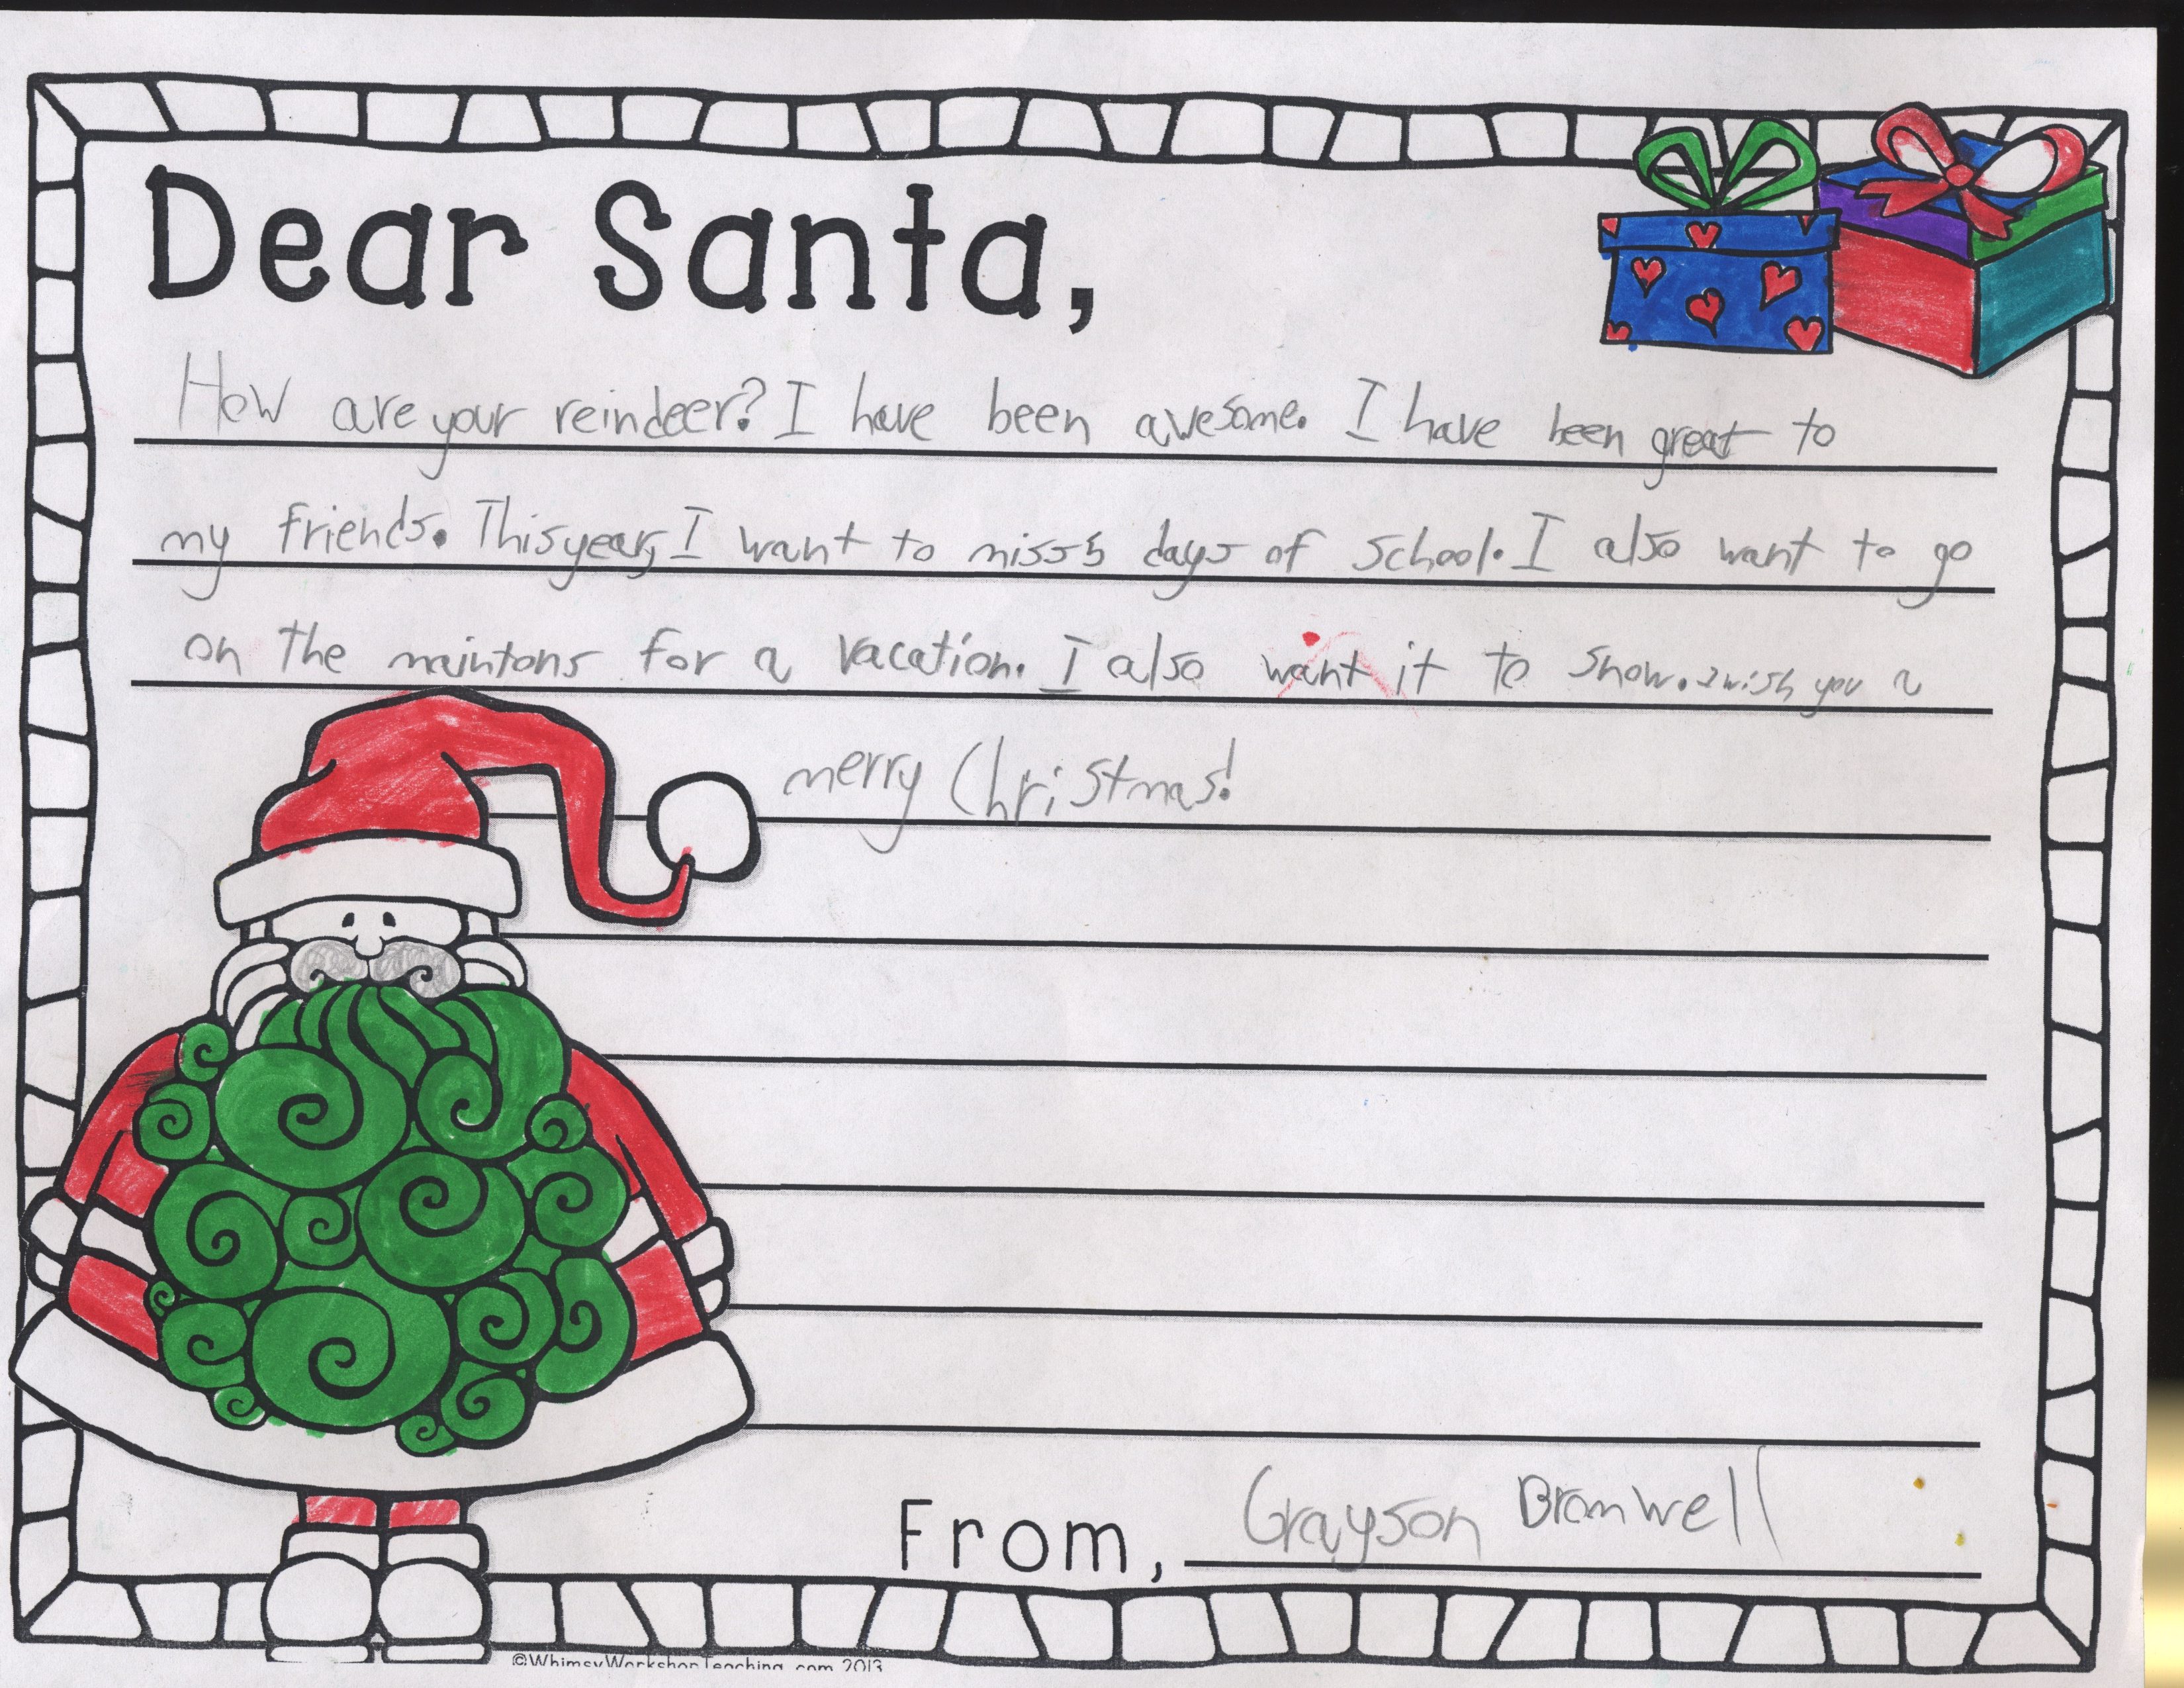 Dear Santa,
How are your reindeer? I have been awesome. I have been great to
my friends. This year, I want to miss 5 days of school. I also want to go
on the maintons for a vacation. I also want it to snow. I wish you a
merry Christmas!
From, Grayson Bromwell
©WhimsyWorkshopTeaching.com 2013